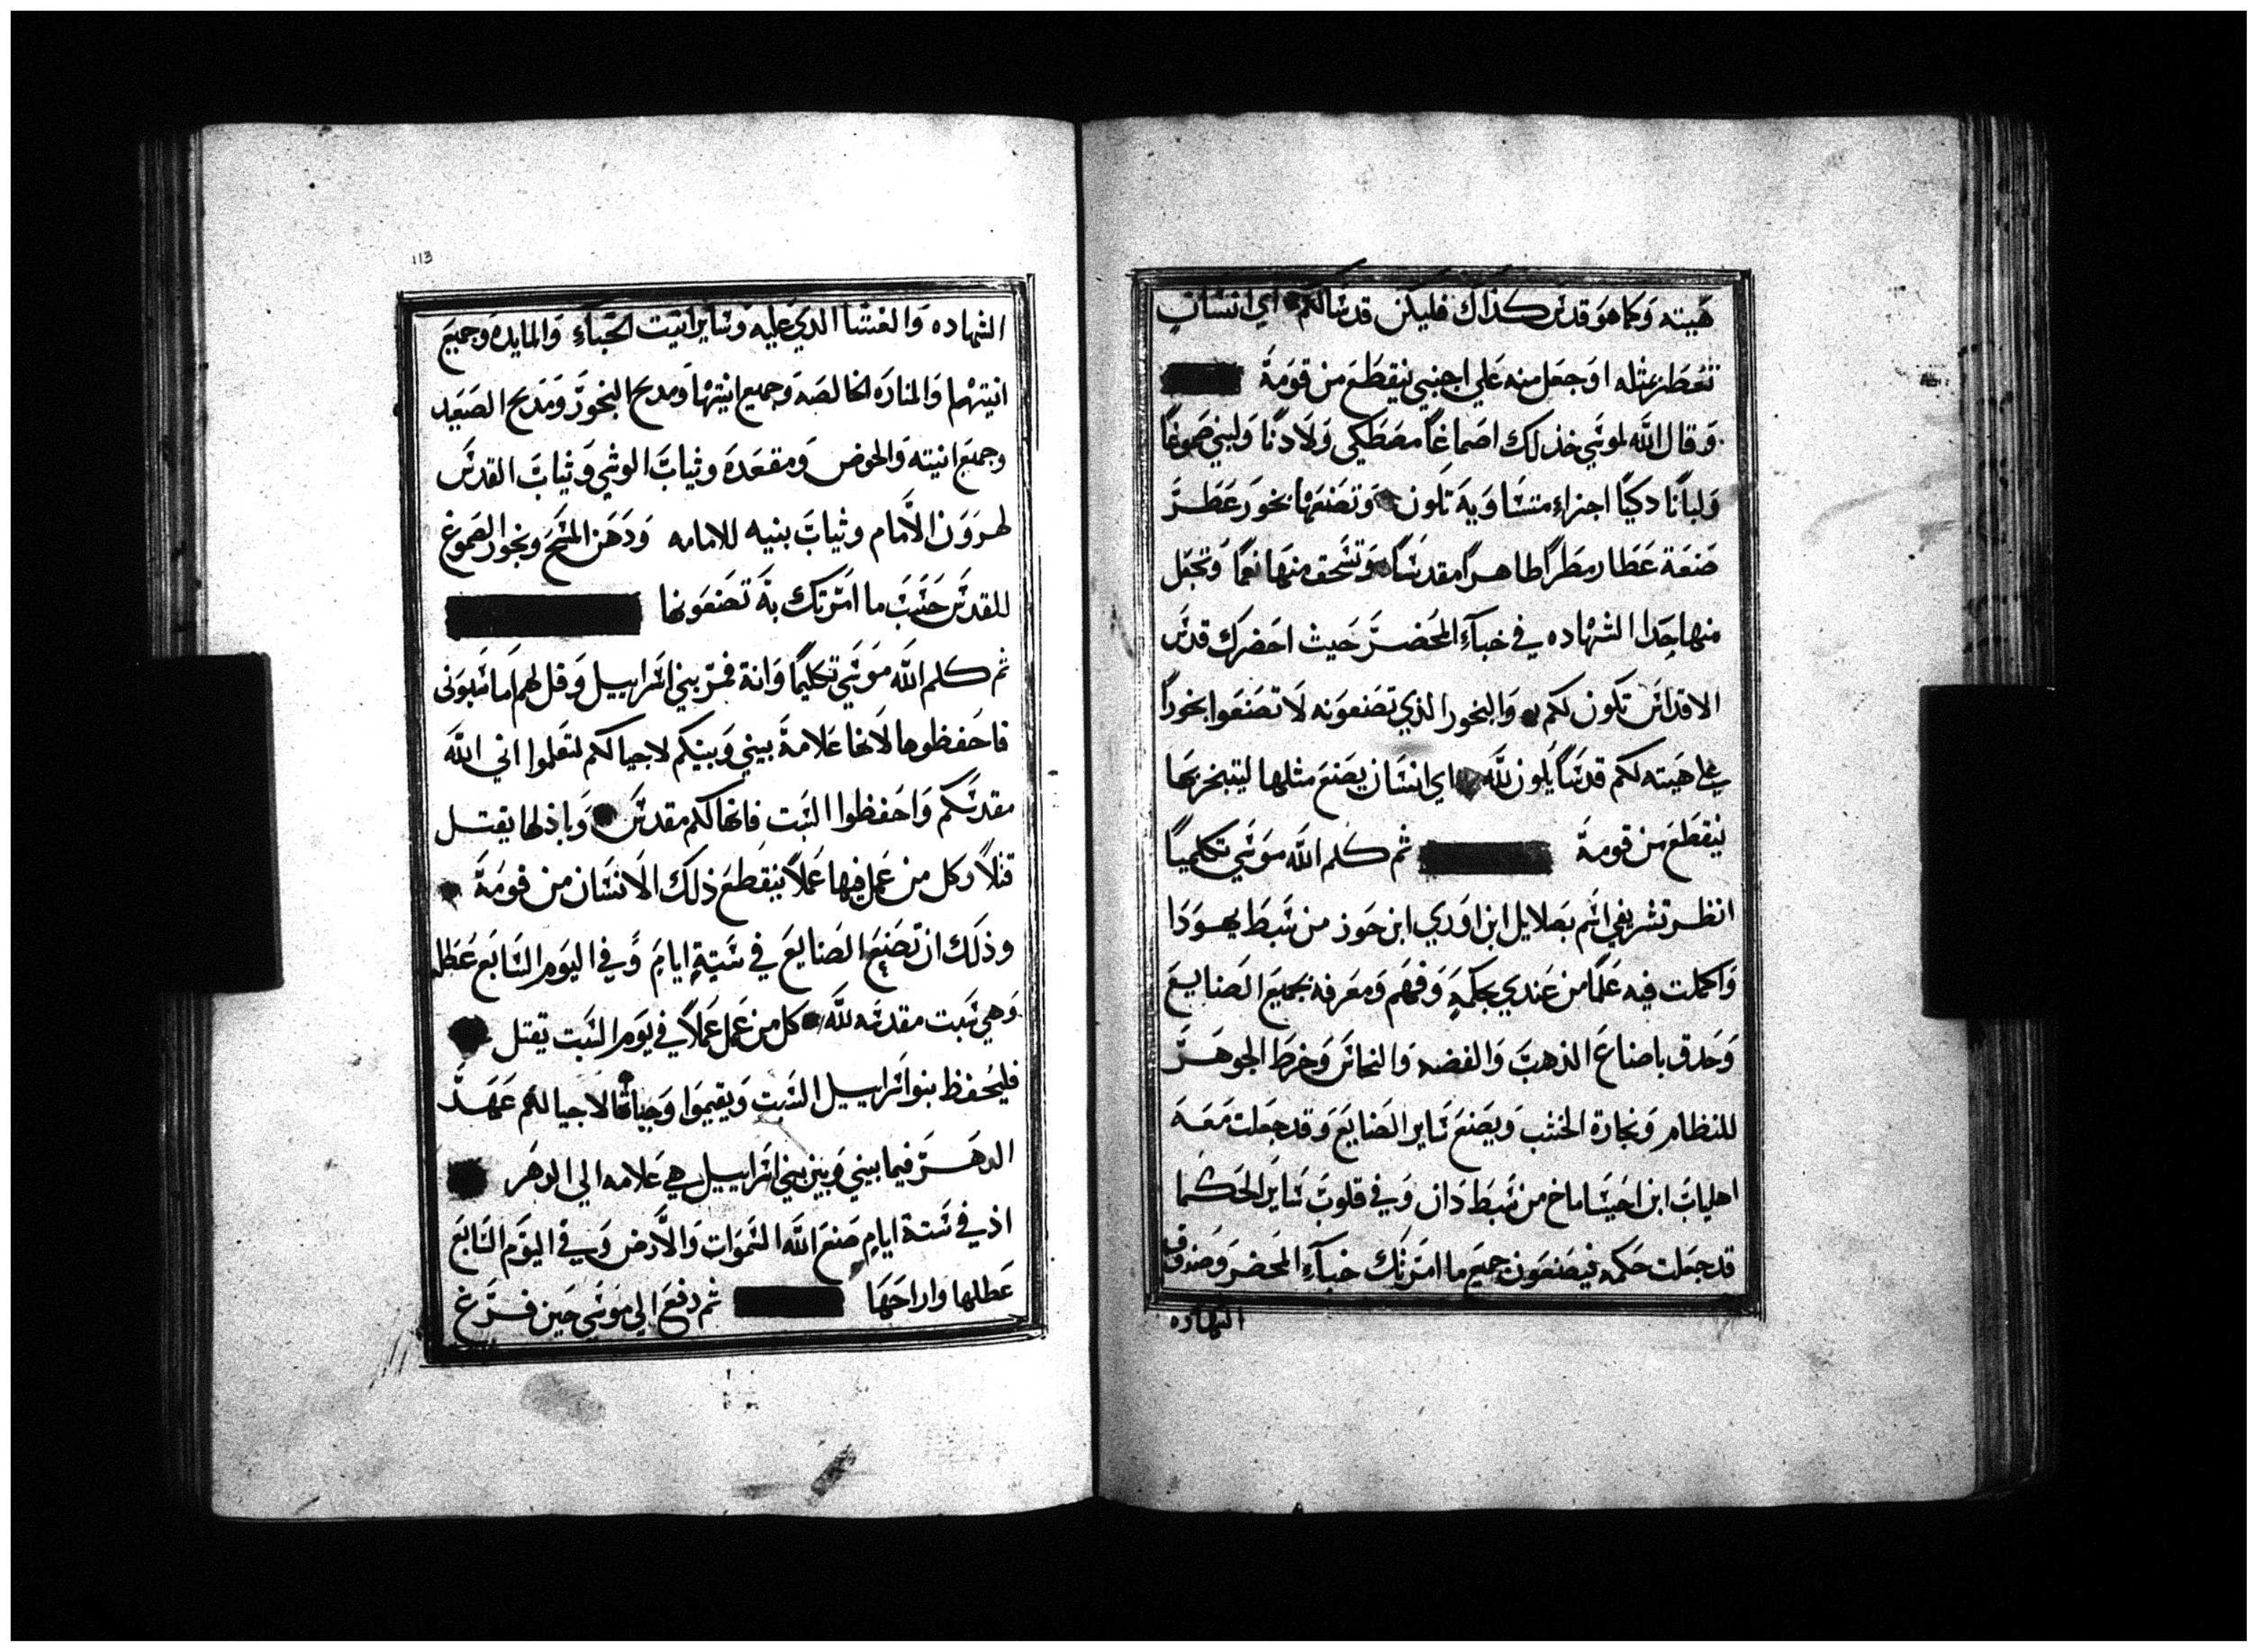 هيته وكما هو قدس كذاك فليكن قدسا لكم اي انسان
تعطر بمثله او جعل منه علي اجنبي ينقطع من قومة
وقال الله لموسي خذ لك اصماغا مصطكي ولادنا ولبني صموغا
ولبانا دكيا اجزاء متساوية تكون وتصنعها بخور عطر
صنعة عطار مطرا طاهرا مقدسا وتسحق منها نعما وتجعل
منها حدا الشهاده في خباء المحضر حيث احضرك قدس
الاقداس تكون لكم والبخور الذي تصنعونه لا تصنعوا بخورا
علي هيته لكم قدسا يكون لله اي انسان يصنع مثلها ليتبخر بها
ينقطع من قومة ثم كلم الله موسي تكليما
انظر تشريفي اسم بصلايل ابن اوري ابن حوز من سبط يهودا
واكملت فيه علما من عندي بحكمة وفهم ومعرفه بجميع الصنايع
وحدق باصناع الذهب والفضه والنحاس وخرط الجوهر
للنظام ونجارة الخشب ويصنع ساير الصنايع وقد جعلت معه
اهلياب ابن احيساماخ من سبط دان وفي قلوب ساير الحكما
قد جعلت حكمه فيصنعون جميع ما امرتك خباء المحضر وصندوق
الشهاده
113
الشهاده والغشا الدي عليه وساير انيت الخباء والمايده وجميع
انيتهما والمناره الخالصه وجميع انيتها ومدبح البخور ومدبح الصعيد
وجميع انيته والحوض ومقعده وثياب الوشي وثياب القدس
لهرون الامام وثياب بنيه للامامه ودهن المسح وبخور الصموغ
للقدس حسب ما امرتك به تصنعونها
ثم كلم الله موسي تكليما وانة فمر بني اسراييل وقل لهم اما سبوتي
فاحفظوها لانها علامة بيني وبينكم لاجيالكم لتعلموا اني الله
مقدسكم واحفظوا السبت فانها لكم مقدس وباذلها يقتل
قتلا وكل من عمل فيها عملا ينقطع ذلك الانسان من قومة
وذلك ان تصنع الصنايع في ستة ايام وفي اليوم السابع عطله
وهي سبت مقدسه لله كل من عمل عملا في يوم السبت يقتل
فليحفظ بنو اسراييل السبت ويقيموا وجباتها لاجيالهم عهد
الدهر فيما بيني وبين بني اسراييل هي علامه الي الدهر
اذ في ستة ايام صنع الله السموات والارض وفي اليوم السابع
عطلها واراحها ثم دفع الي موسي حين فرغ